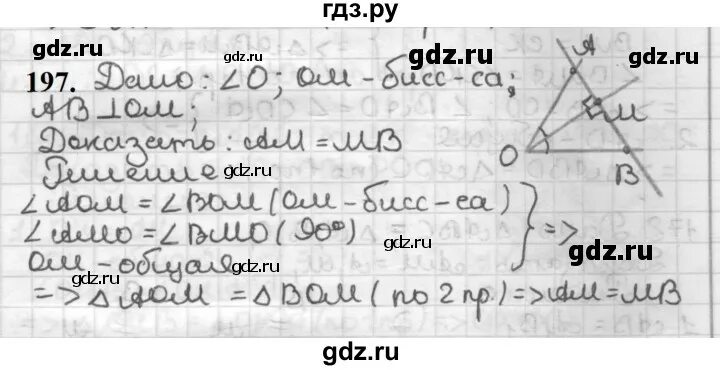 гдз.ру
197. Дано: ∠O; OM - бисс-са;
AB⊥OM;
Доказать: AM = MB
Решение
∠AOM = ∠BOM (OM - бисс-са)
∠AMO = ∠BMO (90°) } =>
OM - общая
=> △AOM = △BOM (по 2 пр.) => AM = MB
A
M
O
B
gdz.ru
gdz.ru
gdz.ru
gdz.ru
gdz.ru
gdz.ru
gdz.ru
gdz.ru
gdz.ru
gdz.ru
gdz.ru